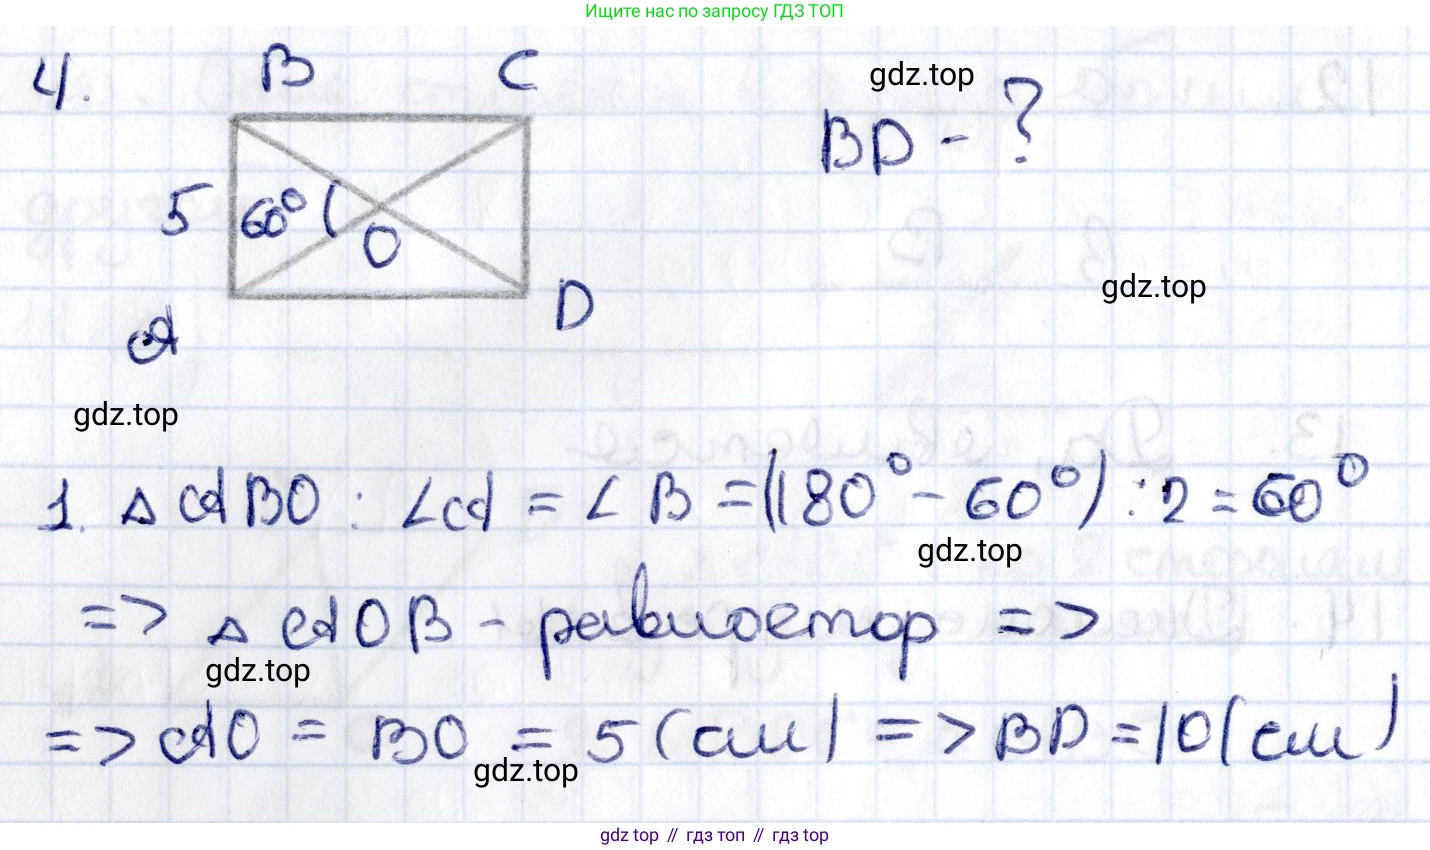 Ищите нас по запросу ГДЗ ТОП
4. B C
gdz.top
BD - ?
5 60° O
gdz.top
A D
gdz.top
1. △ ABO : ∠A = ∠B = (180° - 60°) : 2 = 60°
gdz.top
=> △ AOB - равностор =>
gdz.top
=> AO = BO = 5 (см) => BD = 10 (см)
gdz.top
gdz.top // гдз топ // гдз.top